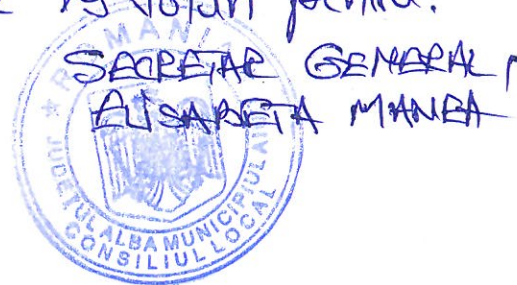 19 voturi pentru.
SECRETAR GENERAL,
ELISABETA MANEA
ROMANIA
JUDETUL ALBA MUNICIPIUL AI
CONSILIUL LOCAL